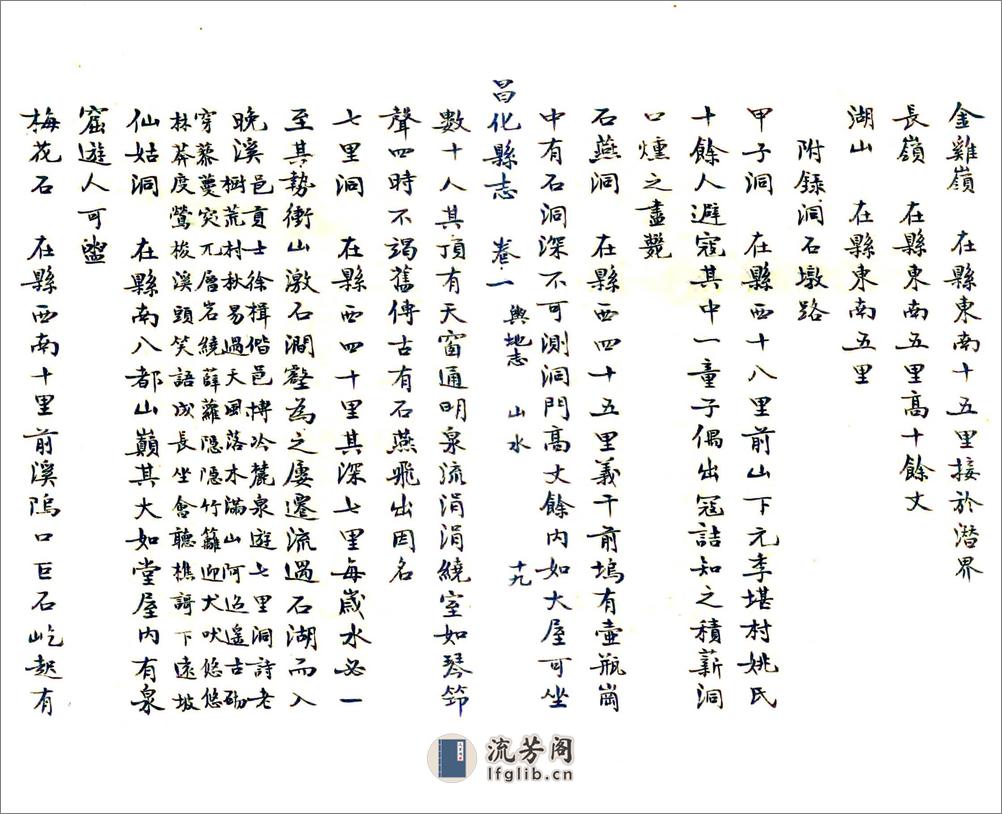 金雞嶺　在縣東南十五里接於潛界
長嶺　在縣東南五里高十餘丈
湖山　在縣東南五里
附錄洞石墩路
甲子洞　在縣西十八里前山下元季堪村姚氏
十餘人避寇其中一童子偶出寇詰知之積薪洞
口燻之盡斃
石燕洞　在縣西四十五里義干前塢有壺瓶崗
中有石洞深不可測洞門高丈餘內如大屋可坐
昌化縣志　卷一　輿地志　山水　十九
數十人其頂有天窗通明泉流涓涓繞室如琴筑
聲四時不竭舊傳古有石燕飛出因名
七里洞　在縣西四十里其深七里每歲水必一
至其勢衝山激石澗壑為之屢遷流過石湖而入
晚溪邑貢士徐楫偕邑博冷麓泉遊七里洞詩老
樹荒村秋易過天風落木滿山阿迢遙古砌
穿藜蔓突兀層岩繞薜蘿隱隱竹籬迎犬吠悠悠
林莽度鶯梭溪頭笑語成長坐會聽樵謌下遠坡
仙姑洞　在縣南八都山巔其大如堂屋內有泉
窟遊人可盥
梅花石　在縣西南十里前溪塢口巨石屹起有
流芳阁
lfglib.cn